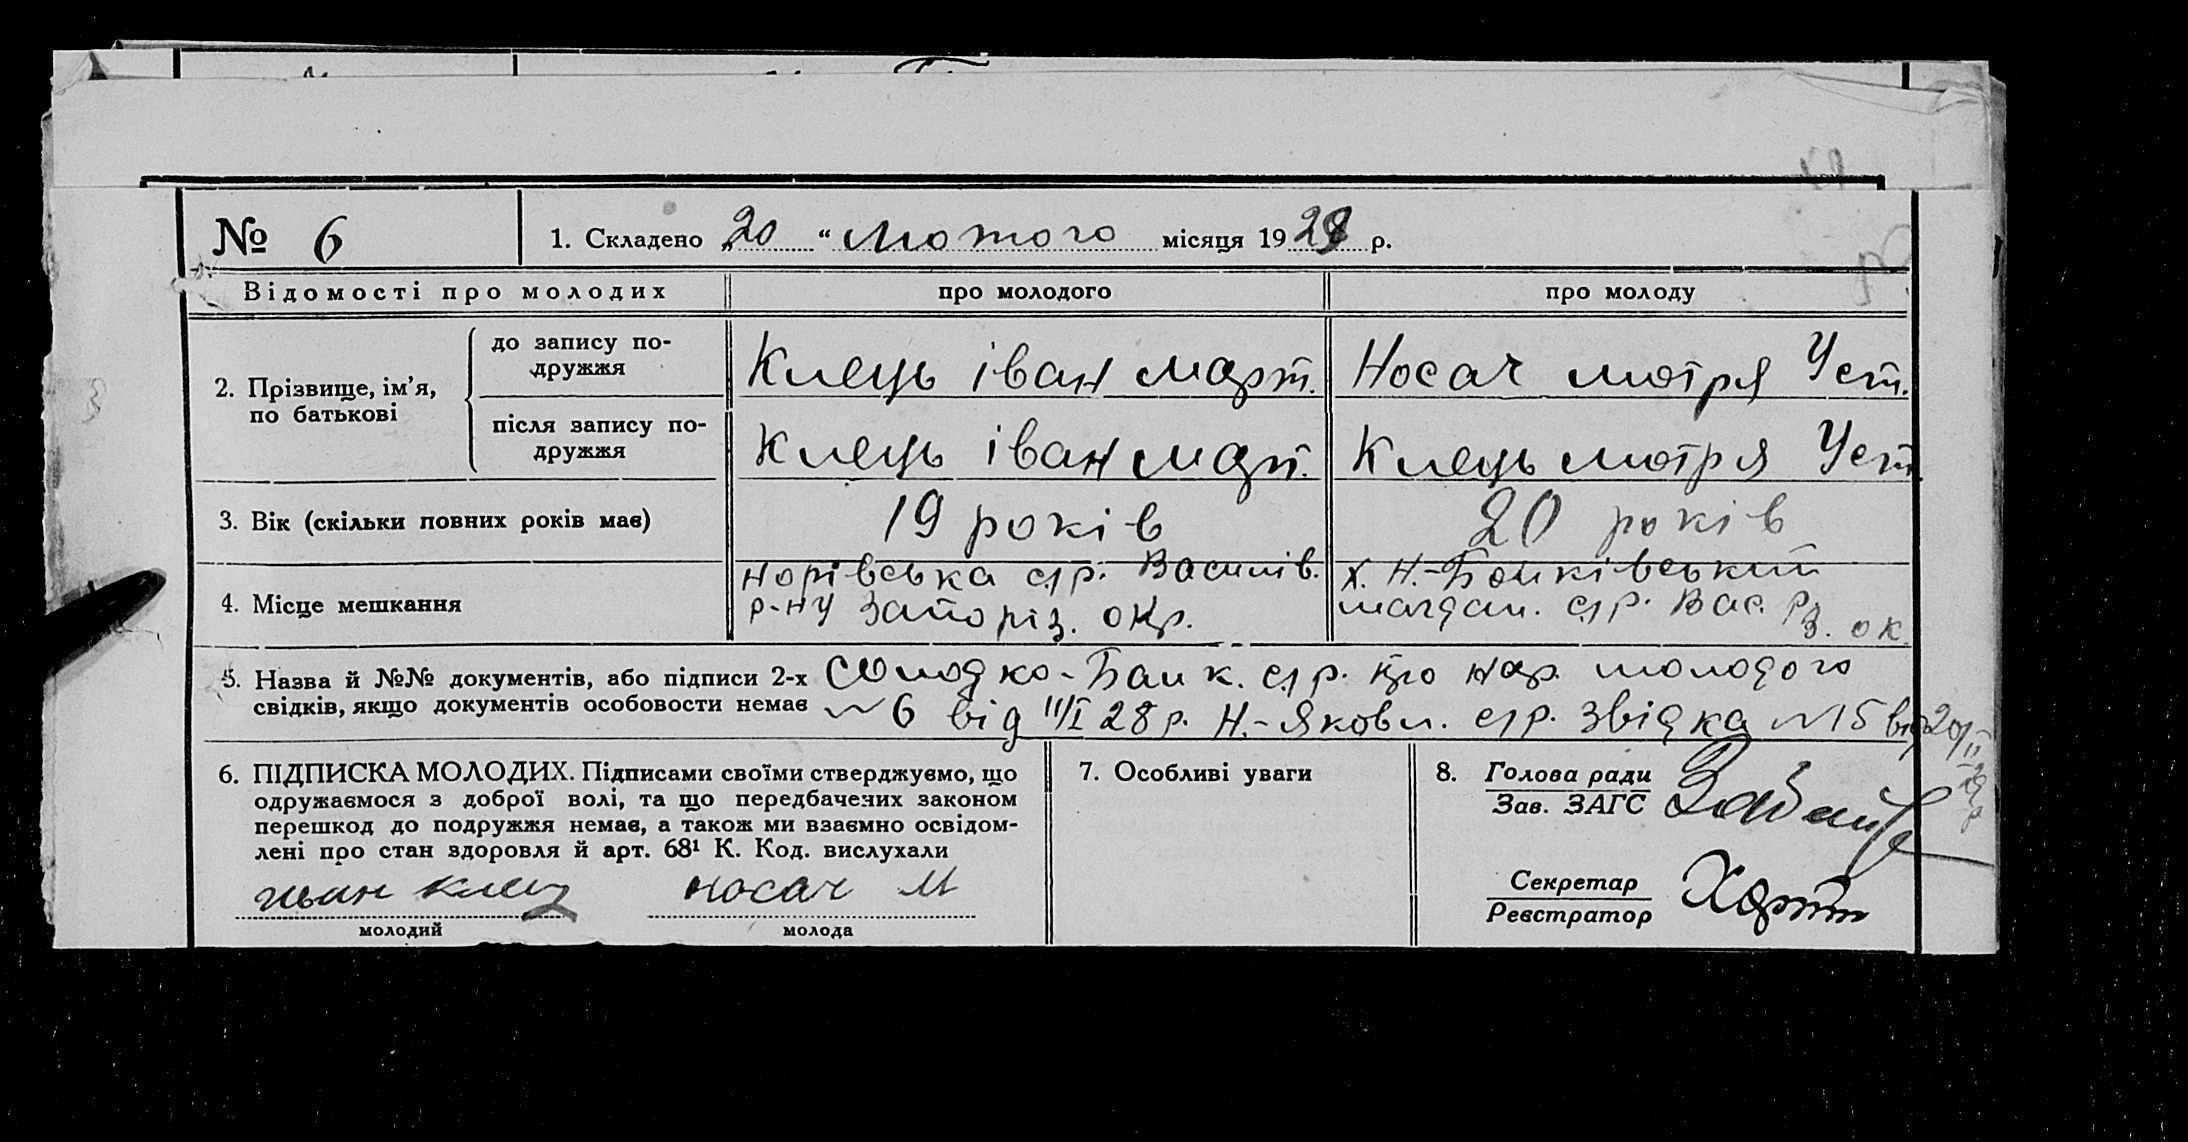 № 6
1. Складено 20 " Лютого місяця 1928 р.
Відомості про молодих
про молодого
про молоду
2. Прізвище, ім'я, по батькові
до запису по-
дружжя
Клець іван март.
Носач мотря Уст.
після запису по-
дружжя
Клець іван март.
Клець мотря Уст
3. Вік (скільки повних років має)
19 років
20 років
4. Місце мешкання
с/р. Василів.
р-ну Запоріз. окр.
х. Н.-
с/р. Вас. р. З. ок.
5. Назва й №№ документів, або підписи 2-х
свідків, якщо документів особовости немає
с/р. про нар. молодого
6 від 11/I 28 р. Н.-Яковл. с/р. звідка № 15 від 20/II
6. ПІДПИСКА МОЛОДИХ. Підписами своїми стверджуємо, що
одружаємося з доброї волі, та що передбачених законом
перешкод до подружжя немає, а також ми взаємно освідом-
лені про стан здоровля й арт. 68¹ К. Код. вислухали
иван клец
молодий
носач М
молода
7. Особливі уваги
8. Голова ради
Зав. ЗАГС
Секретар
Реєстратор